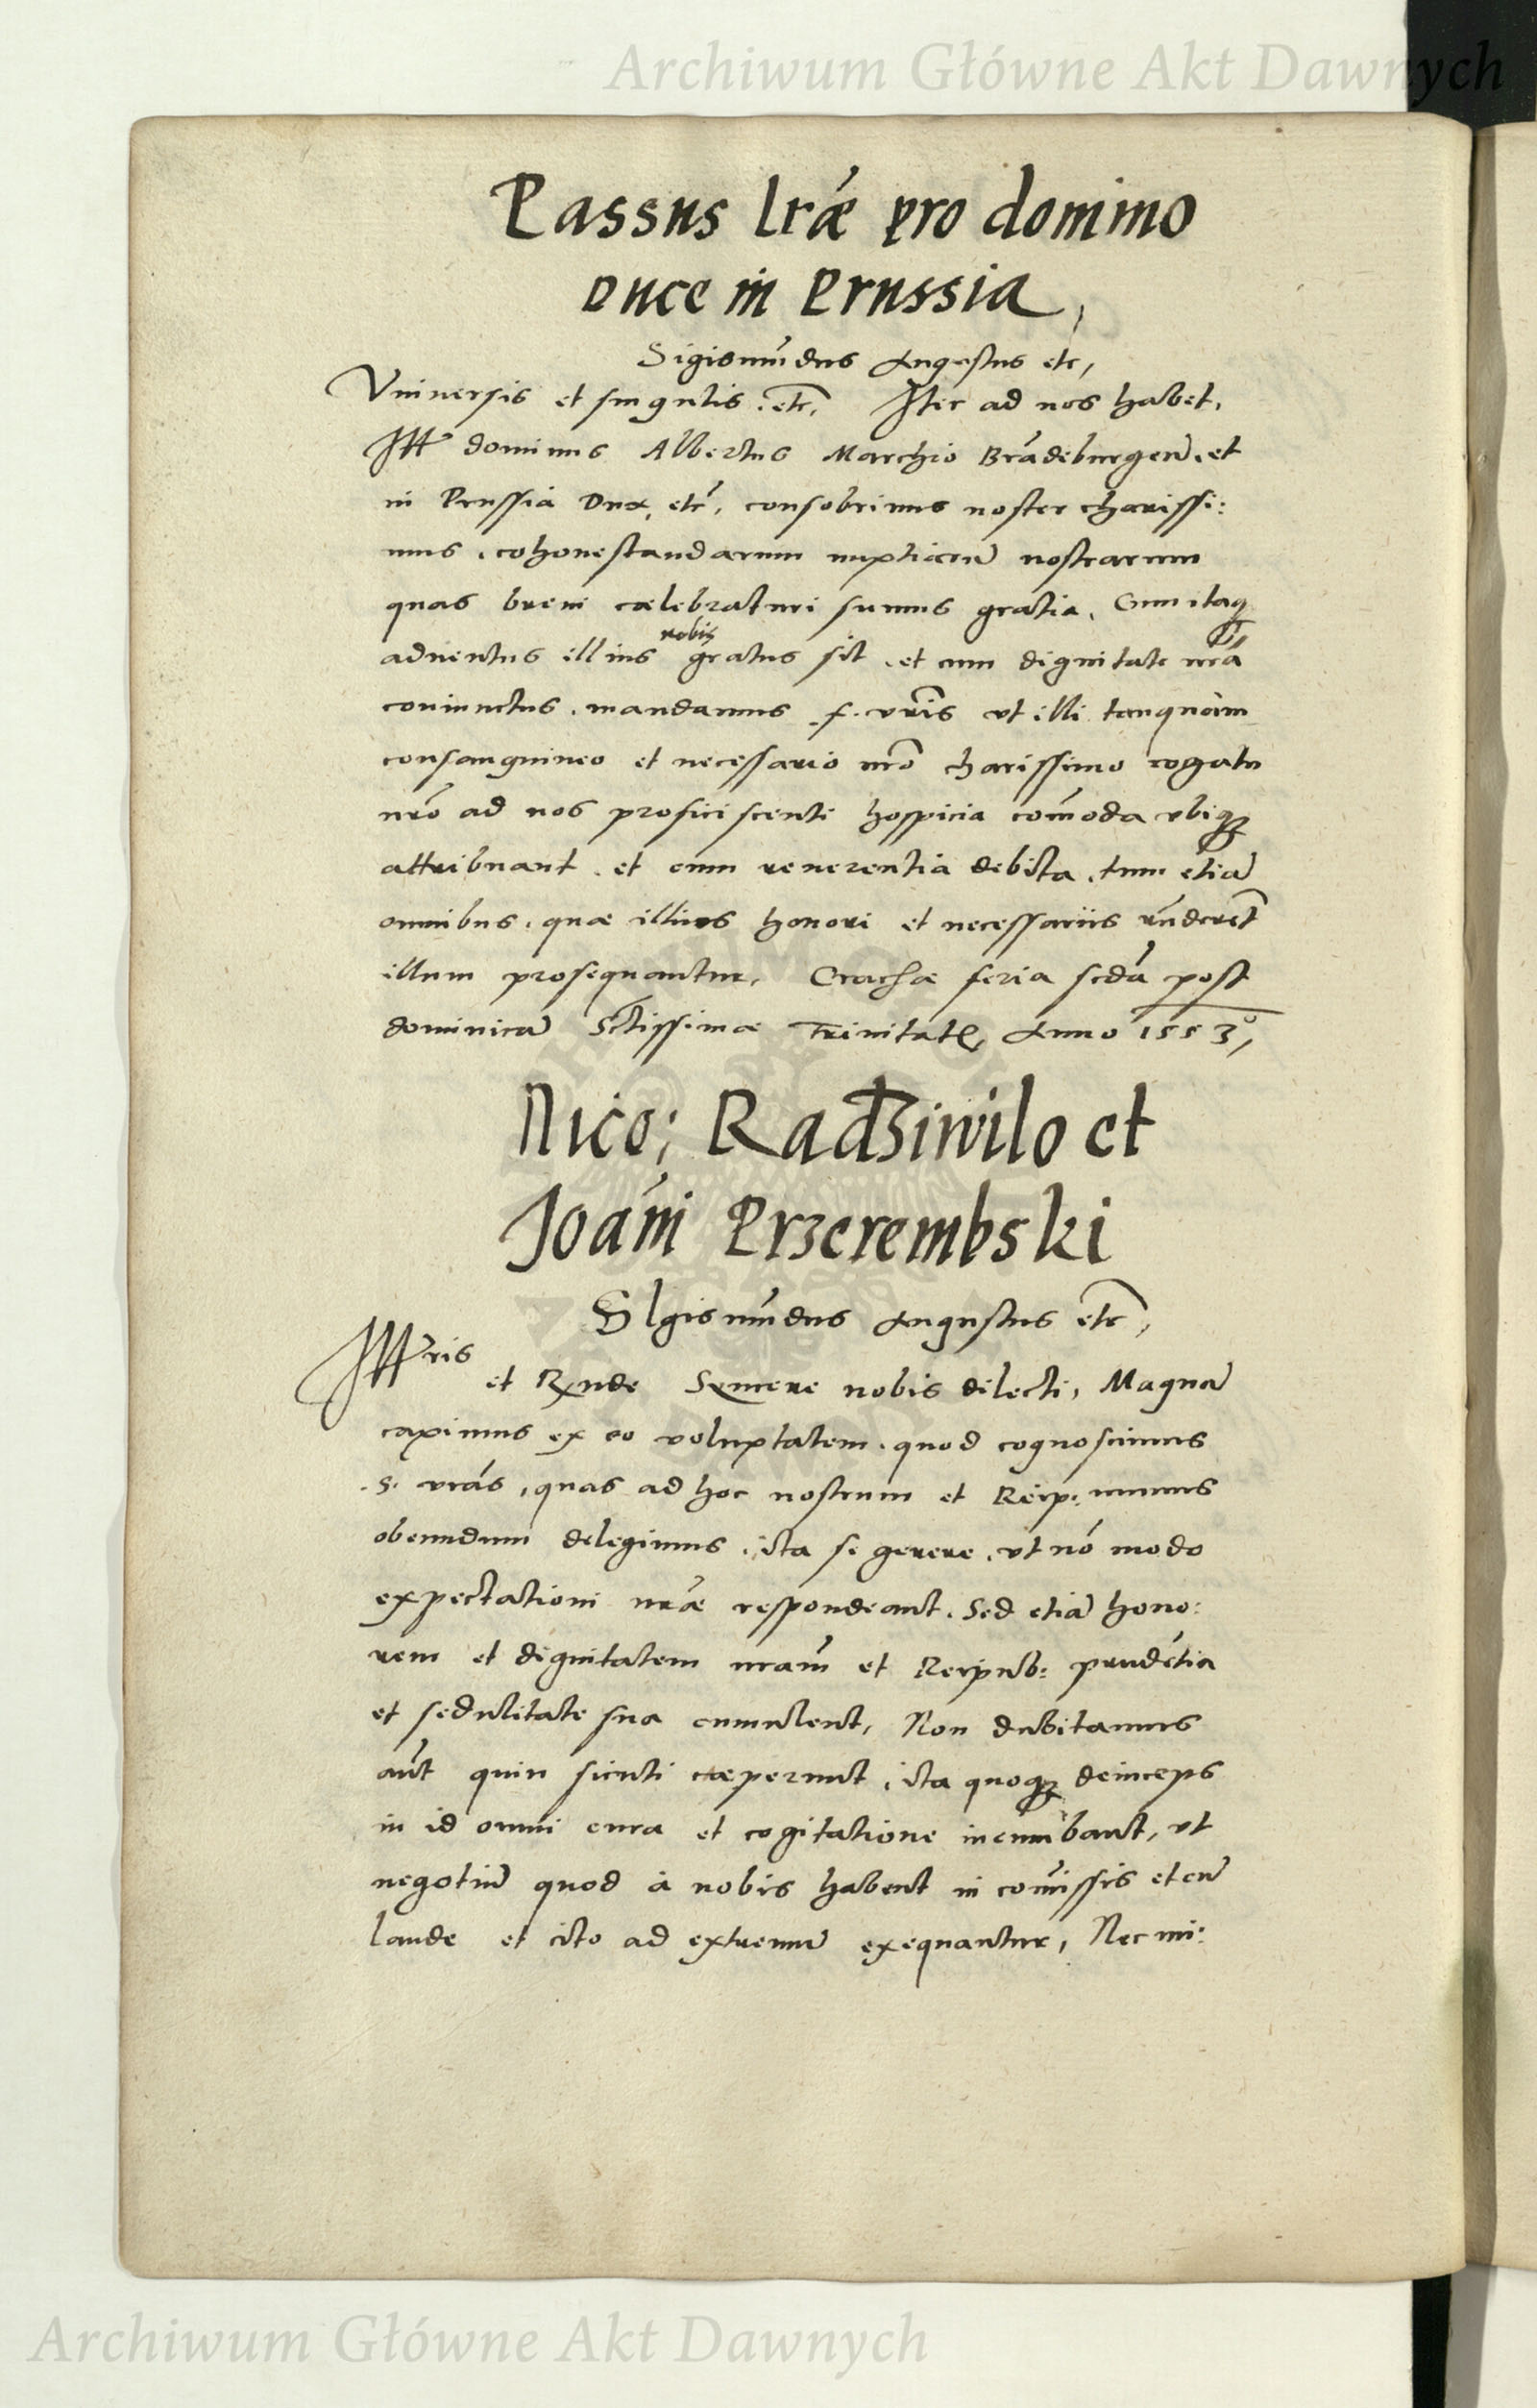 Archiwum Główne Akt Dawnych
Passus lrae pro domino
Duce in Prussia,
Sigismundus Augustus etc,
Vniversis et singulis etc, Iter ad nos habet,
Ill dominus Albertus Marchio Brādeburgen̄. et
in Prussia Dux, etc, consobrinus noster charissi:
mus, cohonestandarum nuptiarū nostrarum
quas brevi cælebraturi sumus gratia. Cum itaq
nobis
adventus illius gratus sit, et cum dignitate nr̄a
coniunctus, mandamus .f. vr̄is vt illi tanquam
consanguineo et necessario nr̄o charissimo rogatu
nr̄o ad nos proficiscenti hospicia com̄oda vbiq
attribuant, et cum reverentia debita, tum etiā
omnibus, quæ illius honori et necessariis
illum prosequantur. Cracoviæ feria scd̄a post
dominicā Sctissimæ Trinitatis, Anno 1553°,
Nico: Radziwilo et
Joān̄i Przerembski
SIgismūdus Augustus etc,
Illris
et Rnde Syncere nobis dilecti, Magnā
capimus ex eo voluptatem, quod cognoscimus
.S. vrās, quas ad hoc nostrum et Reip. munus
obeundum delegimus, ita se gerere, vt nō modo
expectationi nr̄æ respondeant, Sed etiā hono:
rem et dignitatem nram̄ et Reipub: prudētia
et sedulitate sua cumulent, Non dubitamus
aūt quin sicuti cæperunt, ita quoq deinceps
in id omni cura et cogitatione incumbant, vt
negotiū quod à nobis habent in com̄issis et cū
laude et cito ad extremū exequantur, Nec mi:
Archiwum Główne Akt Dawnych